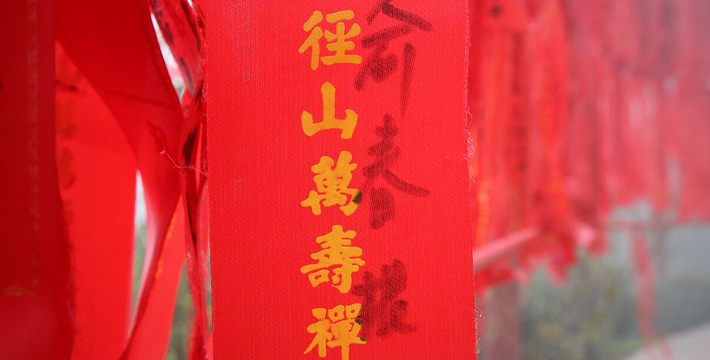 徑山萬壽禪
俞春